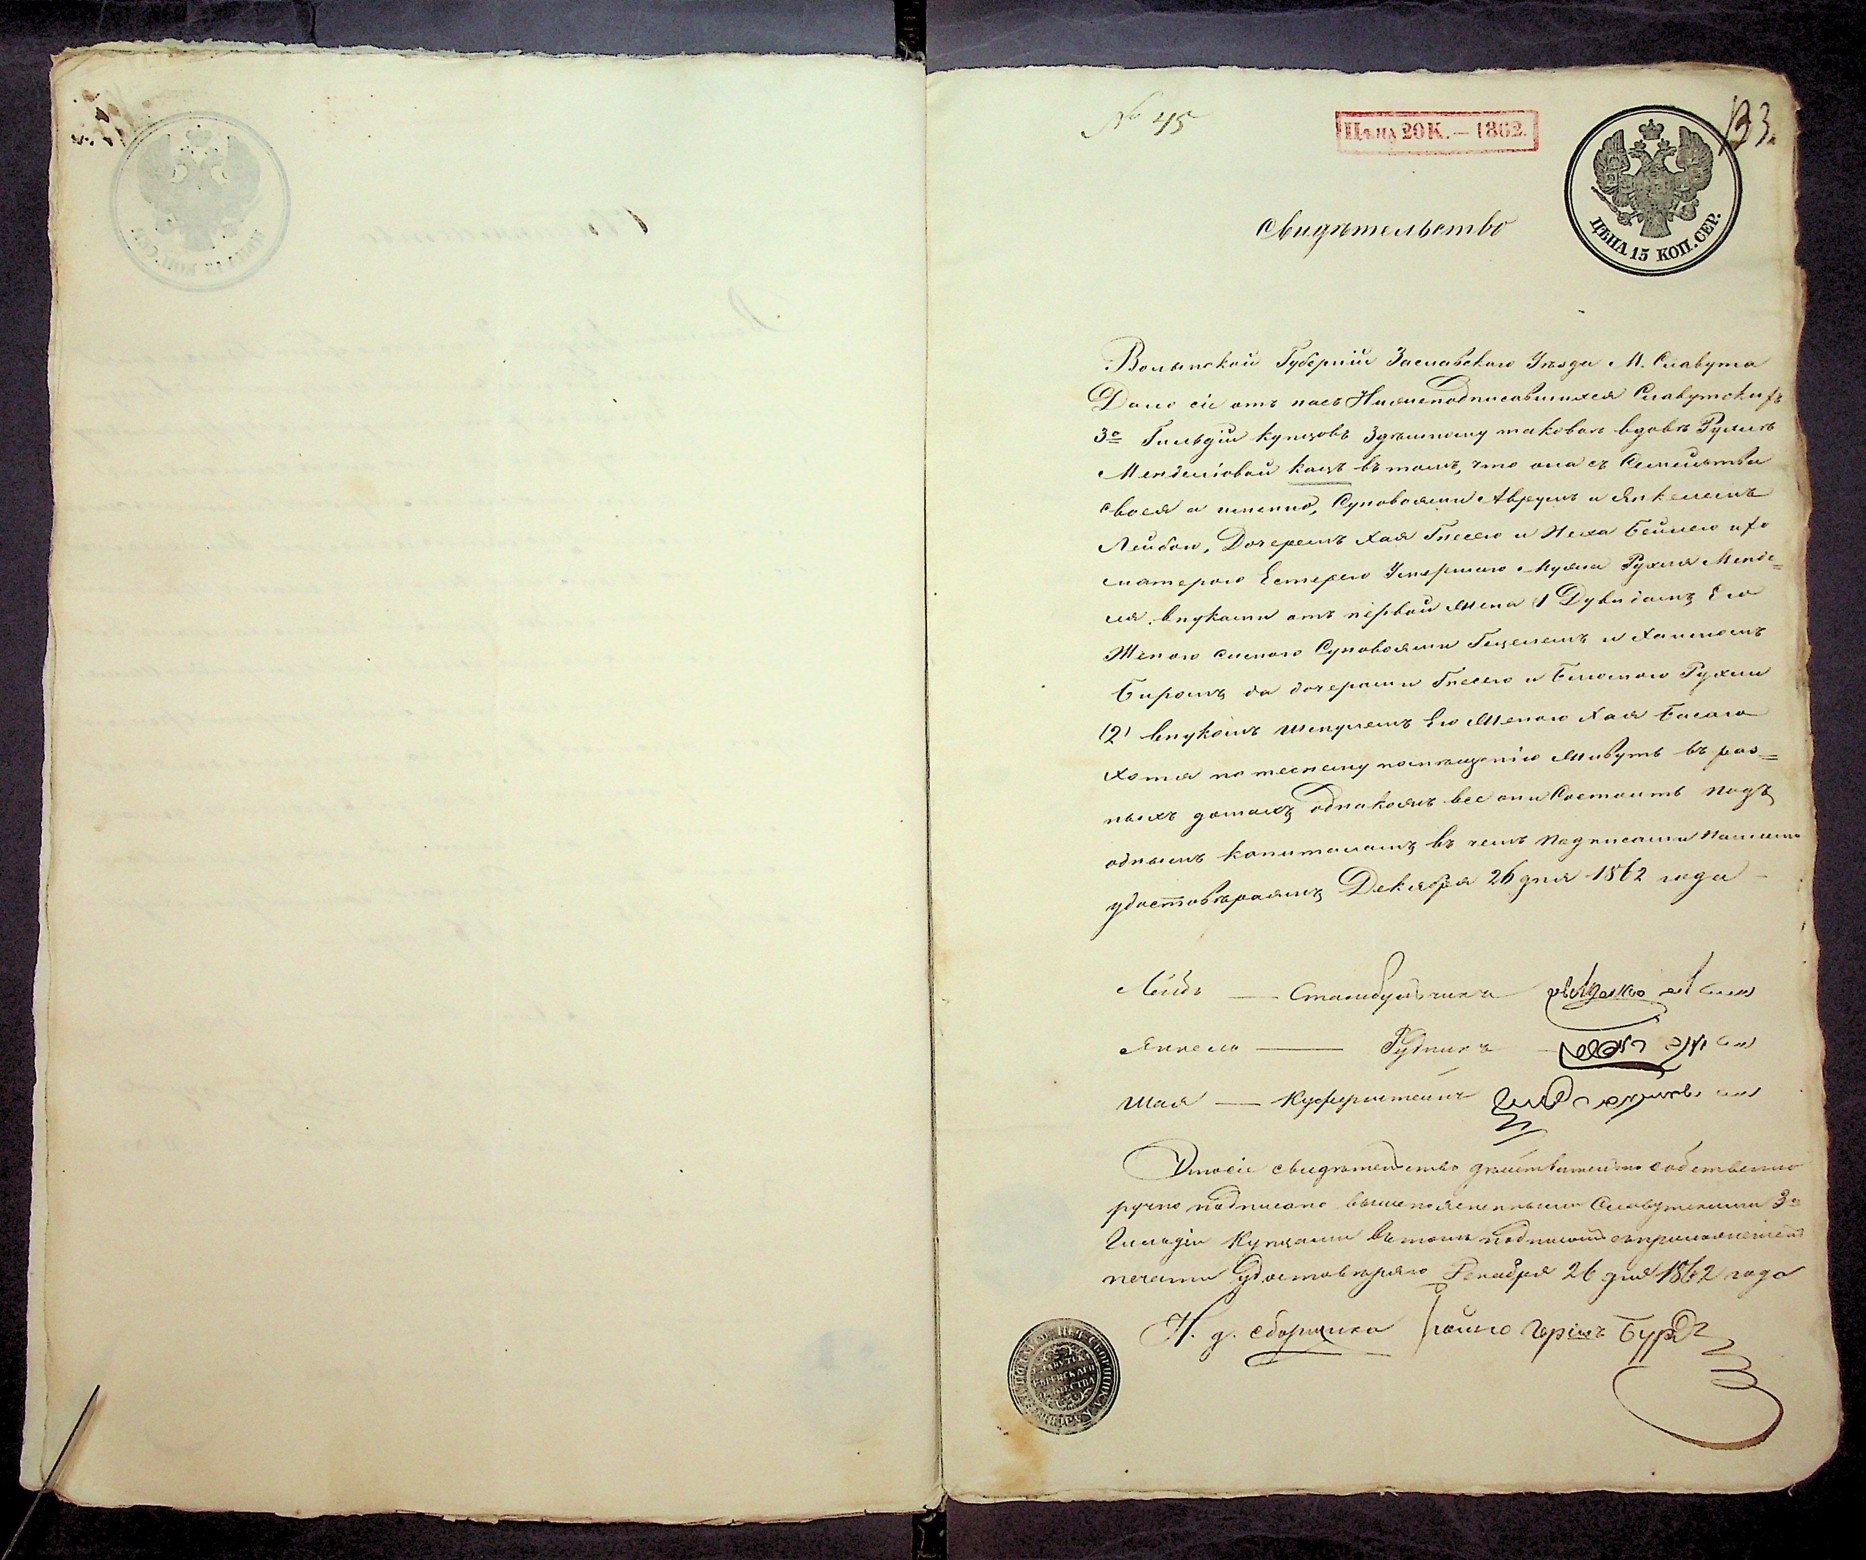 № 45
Цѣна 20 К. — 1862.
133.
ЦѢНА 15 КОП. СЕР.
Свидѣтельство
Волынской Губерніи Заславскаго Уѣзда М. Славута
Дано сіе отъ насъ Нижеподписавшихся Славутскихъ
3й Гильдіи купцовъ Здѣшнему таковой вдовѣ Рухлѣ
Менделіовой Кацъ въ томъ, что она съ Семейства
своея а именно, Суновоями Аврумъ и Янкелемъ
Лейбою, Дочеремъ Хая Гнесею и Неха Бейлею ихъ
матерою Естерою Умершаго Мужа Рухля Менде=
ля внуками отъ первой Жена (1 Дувидомъ Его
Женою Суновоями Гецелемъ и Хаимомъ
Биромъ да дочерами Гнесею и Рухли
(2) внукомъ Шмулемъ Его Женою Хая Басею
Хотя по тесному помѣщенію Живутъ въ раз=
ныхъ домахъ однакожъ все они Состоитъ подъ
однымъ капиталомъ въ чемъ подписами нашими
удостовѣряемъ Декабря 26 дня 1862 года
Лейбъ — Стамбульчикъ
Янкель — Рудникъ
Шая — Куферштейнъ
Что сіе свидѣтельство дѣйствительно собственно
ручно подписано вышепоясненными Славутскими 3й
Гильдіи Купцами въ томъ подписомъ съ приложеніемъ
печати Удостовѣряю Декабря 26 дня 1862 года
Н. д. сборщика Гершъ Бурд